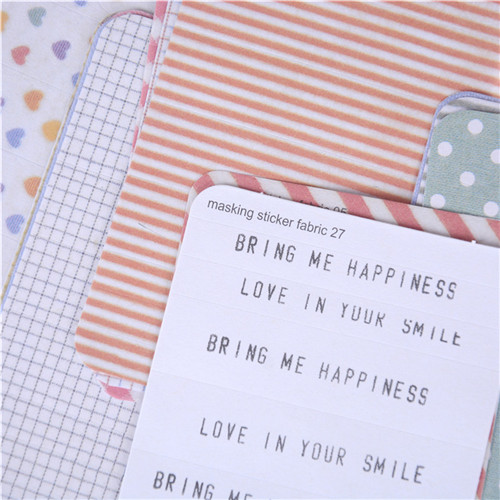 masking sticker fabric 27
BRING ME HAPPINESS
LOVE IN YOUR SMILE
BRING ME HAPPINESS
LOVE IN YOUR SMILE
BRING ME